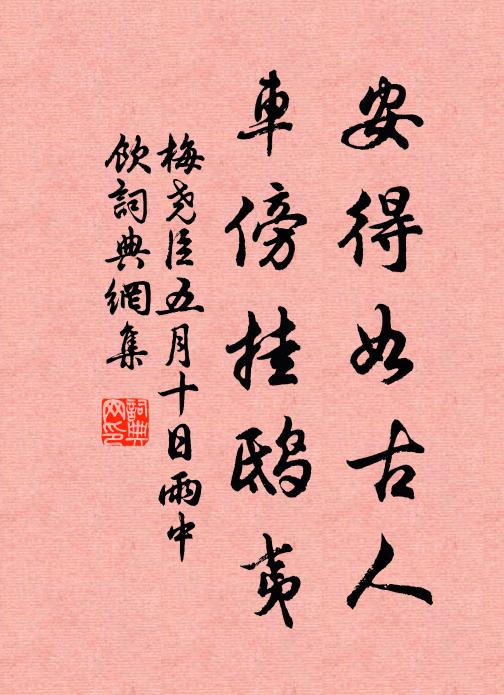 安得如古人
車傍挂鴟夷
梅堯臣五月十日雨中
飲詞典網集
詞典
网印